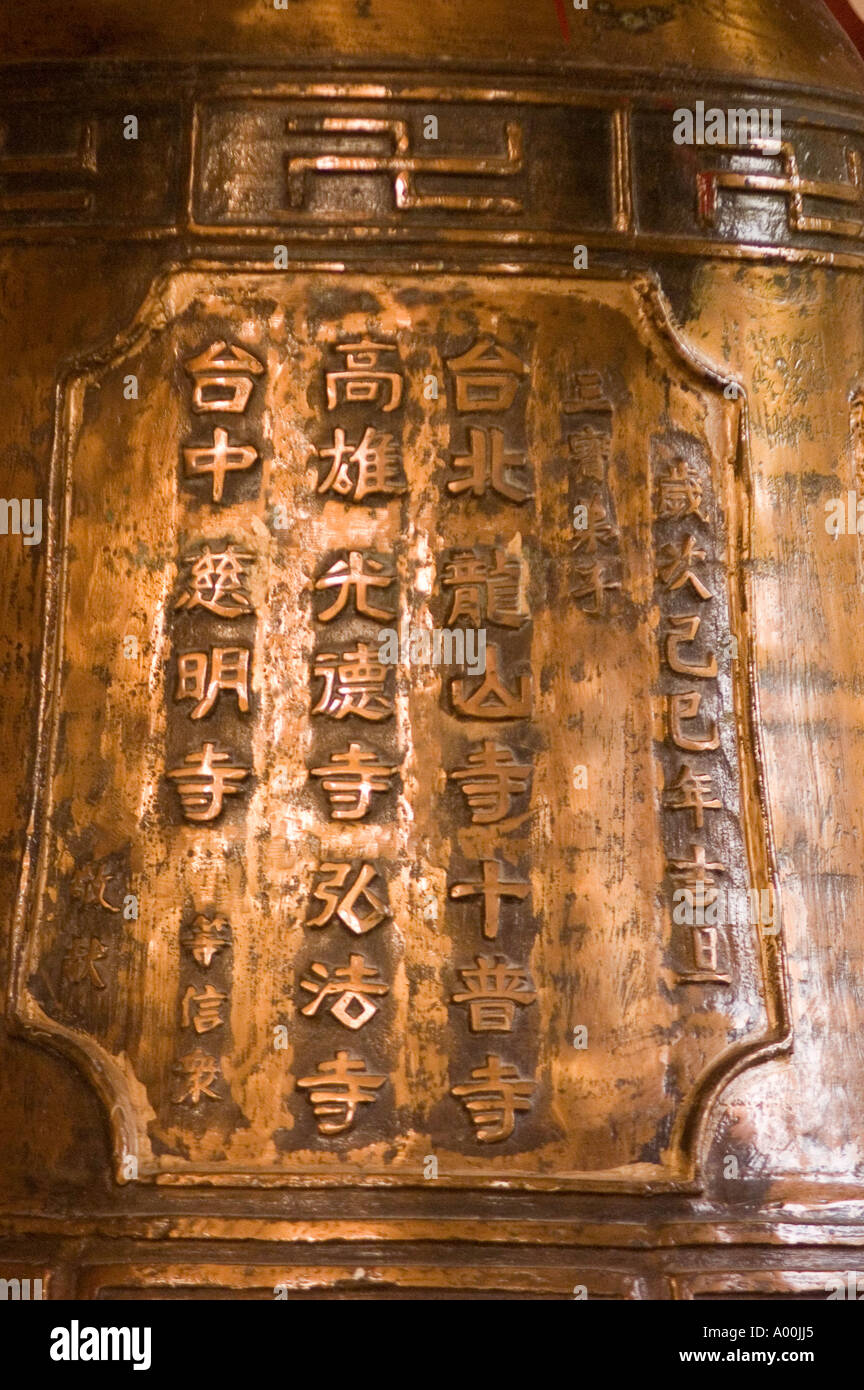 歲次己巳年吉旦
三寶弟子
台北龍山寺十普寺
高雄光德寺弘法寺
台中慈明寺等信衆
敬獻
alamy
alamy
Image ID: A00JJ5
www.alamy.com